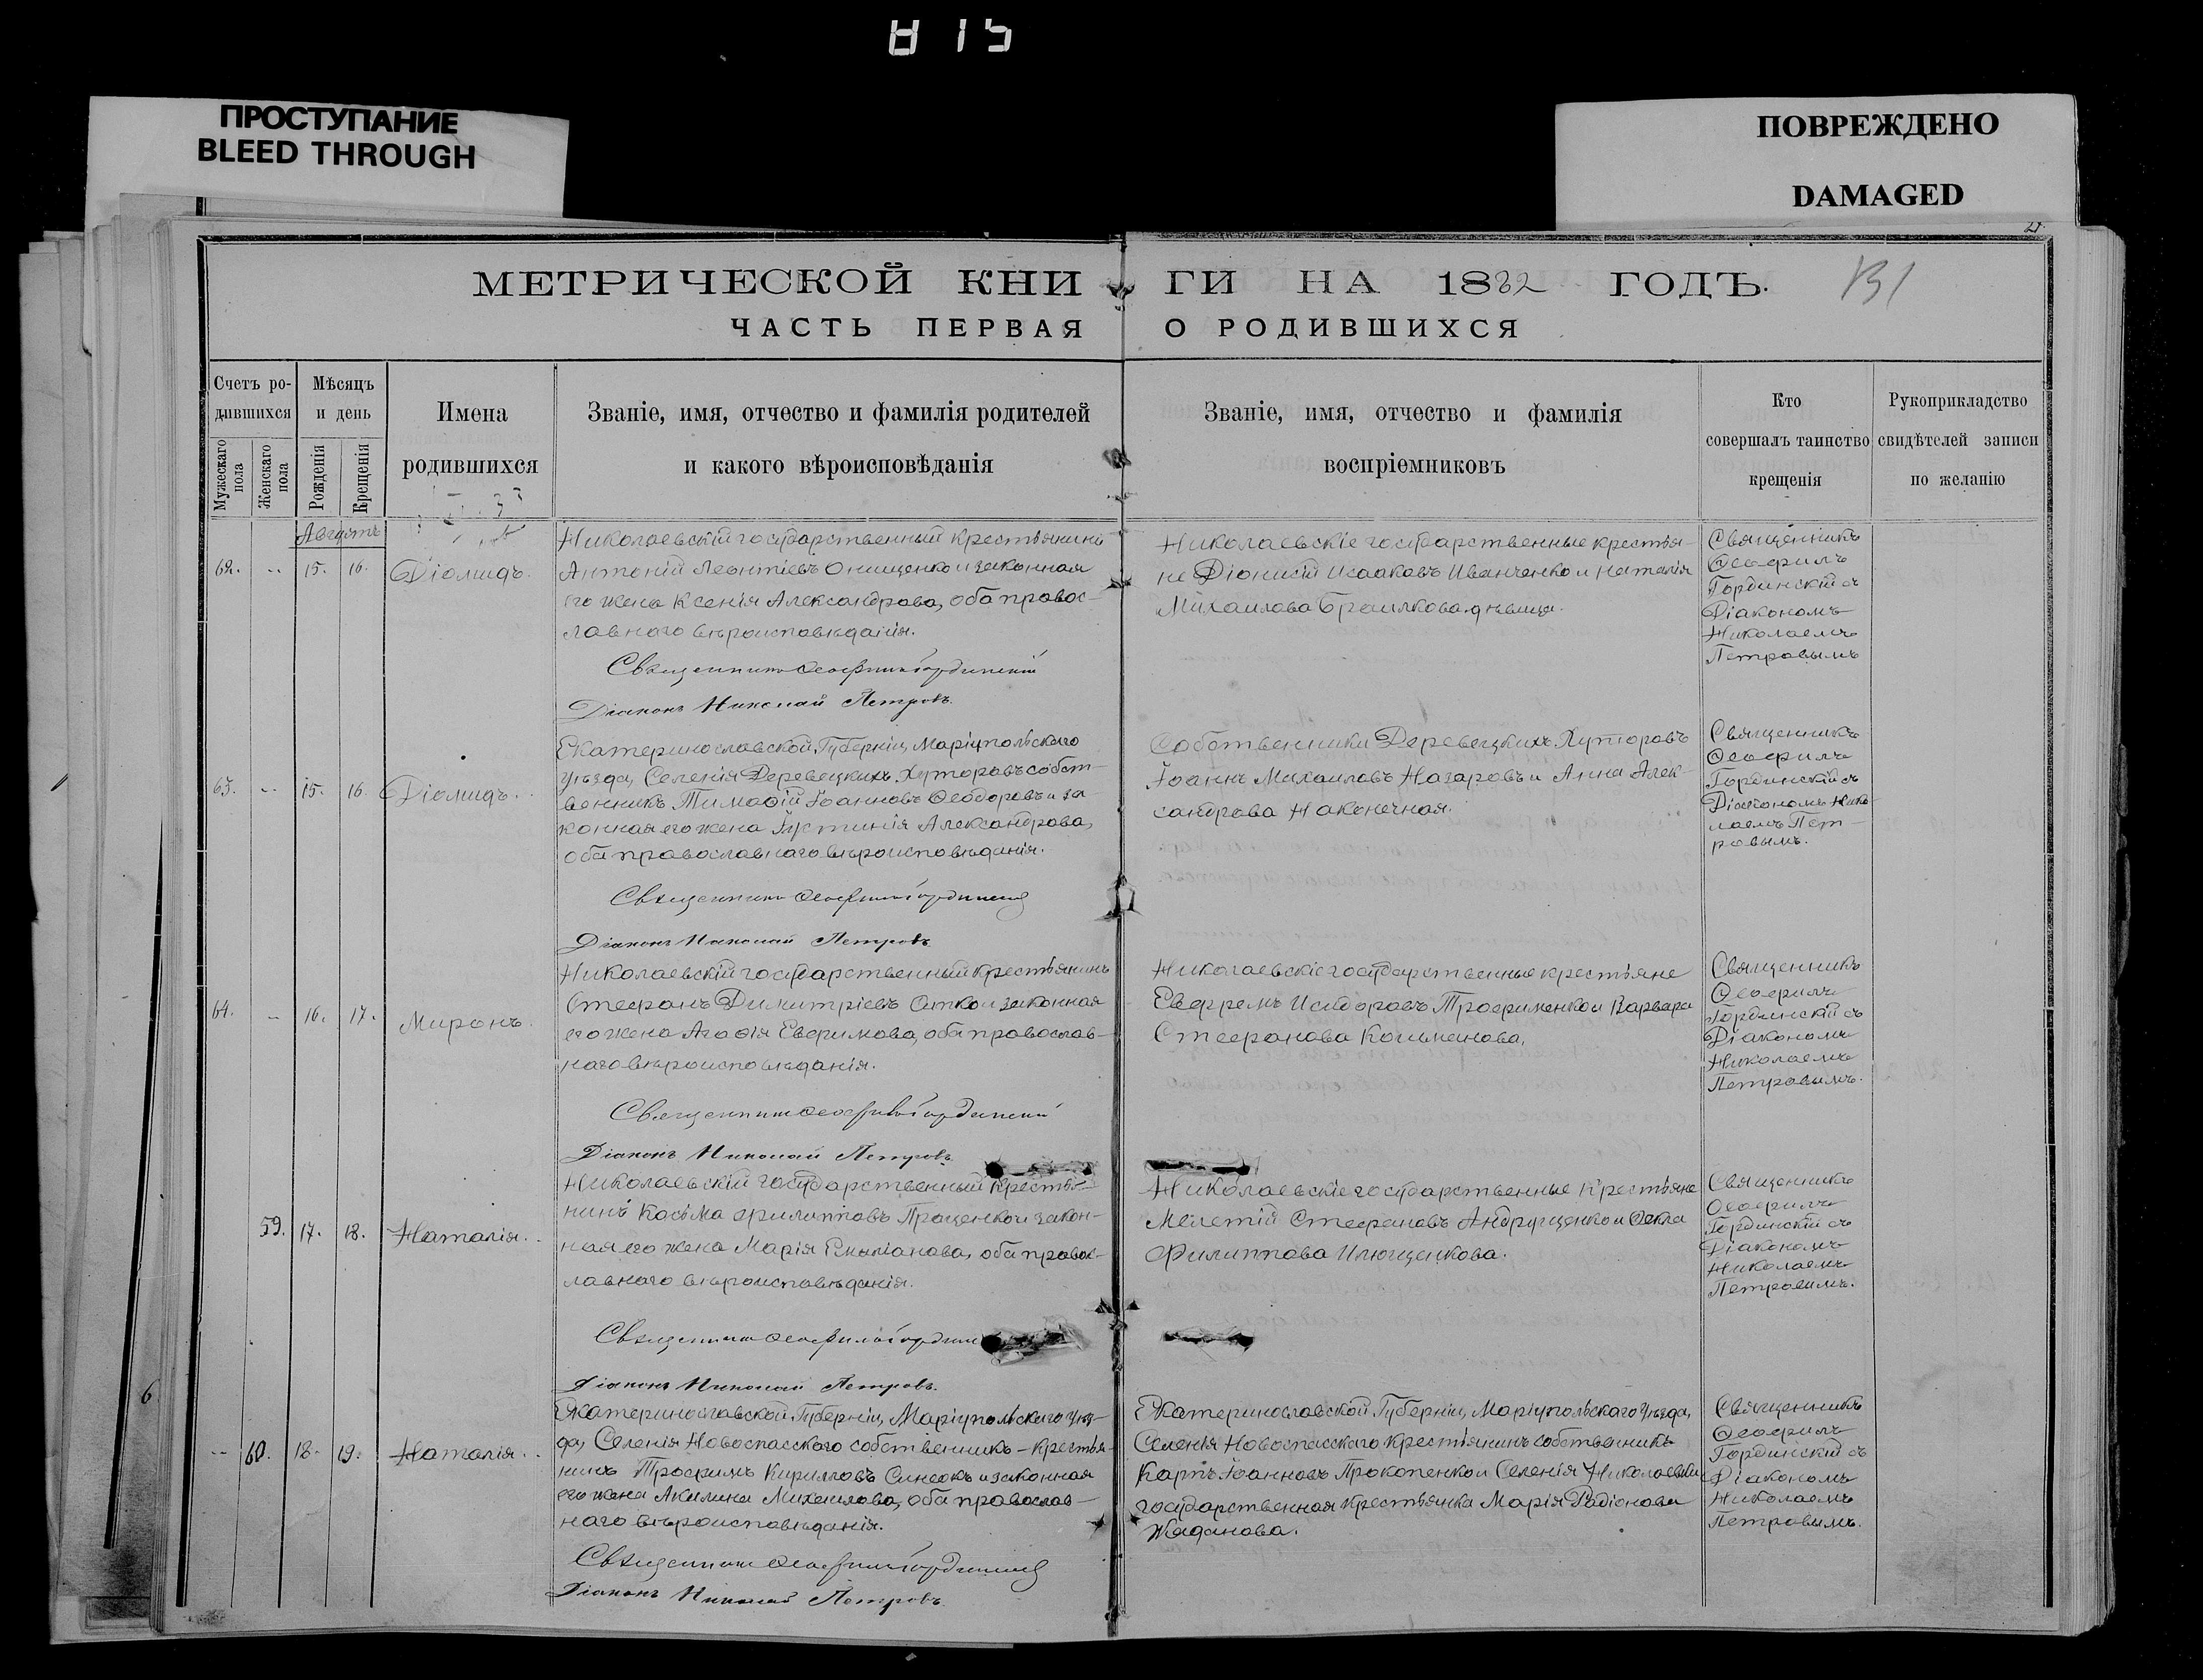 815
ПРОСТУПАНИЕ
BLEED THROUGH
ПОВРЕЖДЕНО
DAMAGED
МЕТРИЧЕСКОЙ КНИ ГИ НА 1882 ГОДЪ.
131
ЧАСТЬ ПЕРВАЯ О РОДИВШИХСЯ
Счетъ ро-
дившихся
Мужескаго пола
Женскаго пола
Мѣсяцъ
и день
Рожденія
Крещенія
Имена
родившихся
Званіе, имя, отчество и фамилія родителей
и какого вѣроисповѣданія
Званіе, имя, отчество и фамилія
воспріемниковъ
Кто
совершалъ таинство
крещенія
Рукоприкладство
свидѣтелей записи
по желанію
Августъ
62. 15. 16. Діомидъ.
Николаевскій государственный крестьянинъ
Антоній Леонтіевъ Онищенко и законная
его жена Ксенія Александрова, оба правос-
лавнаго вѣроисповѣданія.
Священникъ Ѳеофилъ Гординскій
Діаконъ Николай Петровъ.
Николаевскіе государственные крестья-
не Діонисій Исааковъ Иванченко и Наталія
Михаилова Браилкова дѣвица.
Священникъ
Ѳеофилъ
Гординскій съ
Діакономъ
Николаемъ
Петровымъ
63. 15. 16. Діомидъ.
Екатеринославской Губерніи, Маріупольскаго
уѣзда, Селенія Деревецкихъ Хуторовъ собст-
венникъ Тимофій Іоанновъ Ѳеодоровъ и за-
конная его жена Іустинія Александрова,
оба православнаго вѣроисповѣданія.
Священникъ Ѳеофилъ Гординскій
Діаконъ Николай Петровъ
Собственники Деревецкихъ Хуторовъ
Іоаннъ Михаиловъ Назаровъ и Анна Алек-
сандрова Наконечная.
Священникъ
Ѳеофилъ
Гординскій съ
Діакономъ Нико-
лаемъ Пет-
ровымъ.
64. 16. 17. Миронъ.
Николаевскій государственный крестьянинъ
Стефанъ Димитріевъ Сотко и законная
его жена Агафія Евфимова, оба православ-
наго вѣроисповѣданія.
Священникъ Ѳеофилъ Гординскій
Діаконъ Николай Петровъ
Николаевскіе государственные крестьяне
Ефремъ Исидоровъ Трофименко и Варвара
Стефанова
Священникъ
Ѳеофилъ
Гординскій съ
Діакономъ
Николаемъ
Петровымъ.
59. 17. 18. Наталія.
Николаевскій государственный крестья-
нинъ Косьма Филипповъ Проценко и закон-
ная его жена Марія Емиліанова, оба правос-
лавнаго вѣроисповѣданія.
Священникъ Ѳеофилъ Гордин
Діаконъ Николай Петровъ.
Николаевскіе государственные крестьяне
Мелетій Стефановъ Андрущенко и Ѳекла
Филиппова Илющенкова.
Священникъ
Ѳеофилъ
Гординскій съ
Діакономъ
Николаемъ
Петровымъ.
60. 18. 19. Наталія.
Екатеринославской Губерніи, Маріупольскаго уѣз-
да, Селенія Новоспасскаго собственникъ-крестья-
нинъ Трофимъ Кирилловъ и законная
его жена Акилина Михаилова, оба православ-
наго вѣроисповѣданія.
Священникъ Ѳеофилъ Гординскій
Діаконъ Николай Петровъ
Екатеринославской Губерніи, Маріупольскаго уѣзда,
Селенія Новоспасскаго крестьянинъ собственникъ
Карпъ Іоанновъ Прокопенко и Селенія Николаевки
государственная крестьянка Марія Радіонова
Жаданова.
Священникъ
Ѳеофилъ
Гординскій съ
Діакономъ
Николаемъ
Петровымъ.
6